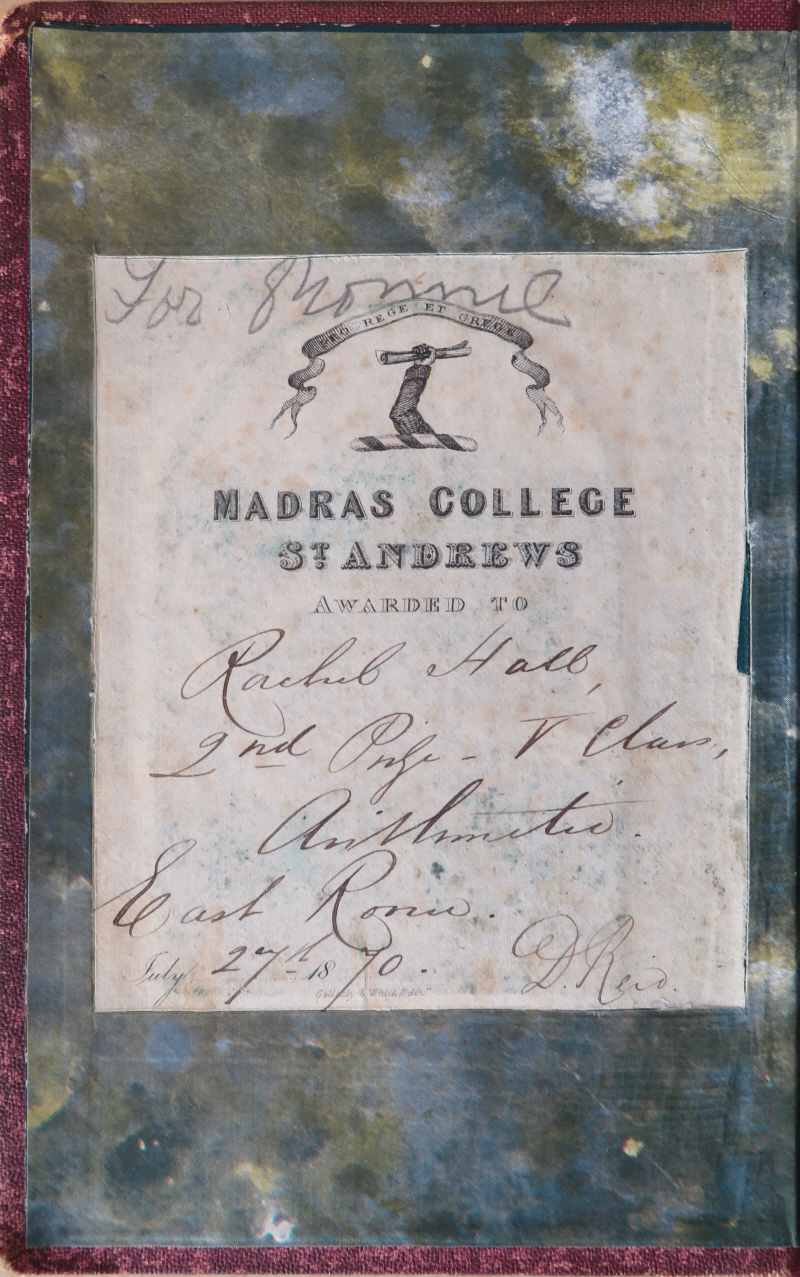 For Monnie
PRO REGE ET GREGE
MADRAS COLLEGE
ST ANDREWS
AWARDED TO
Rachel Hall,
2nd Prize - V Class,
Arithmetic.
East Room.
July 27th 1870.
D. Reid.